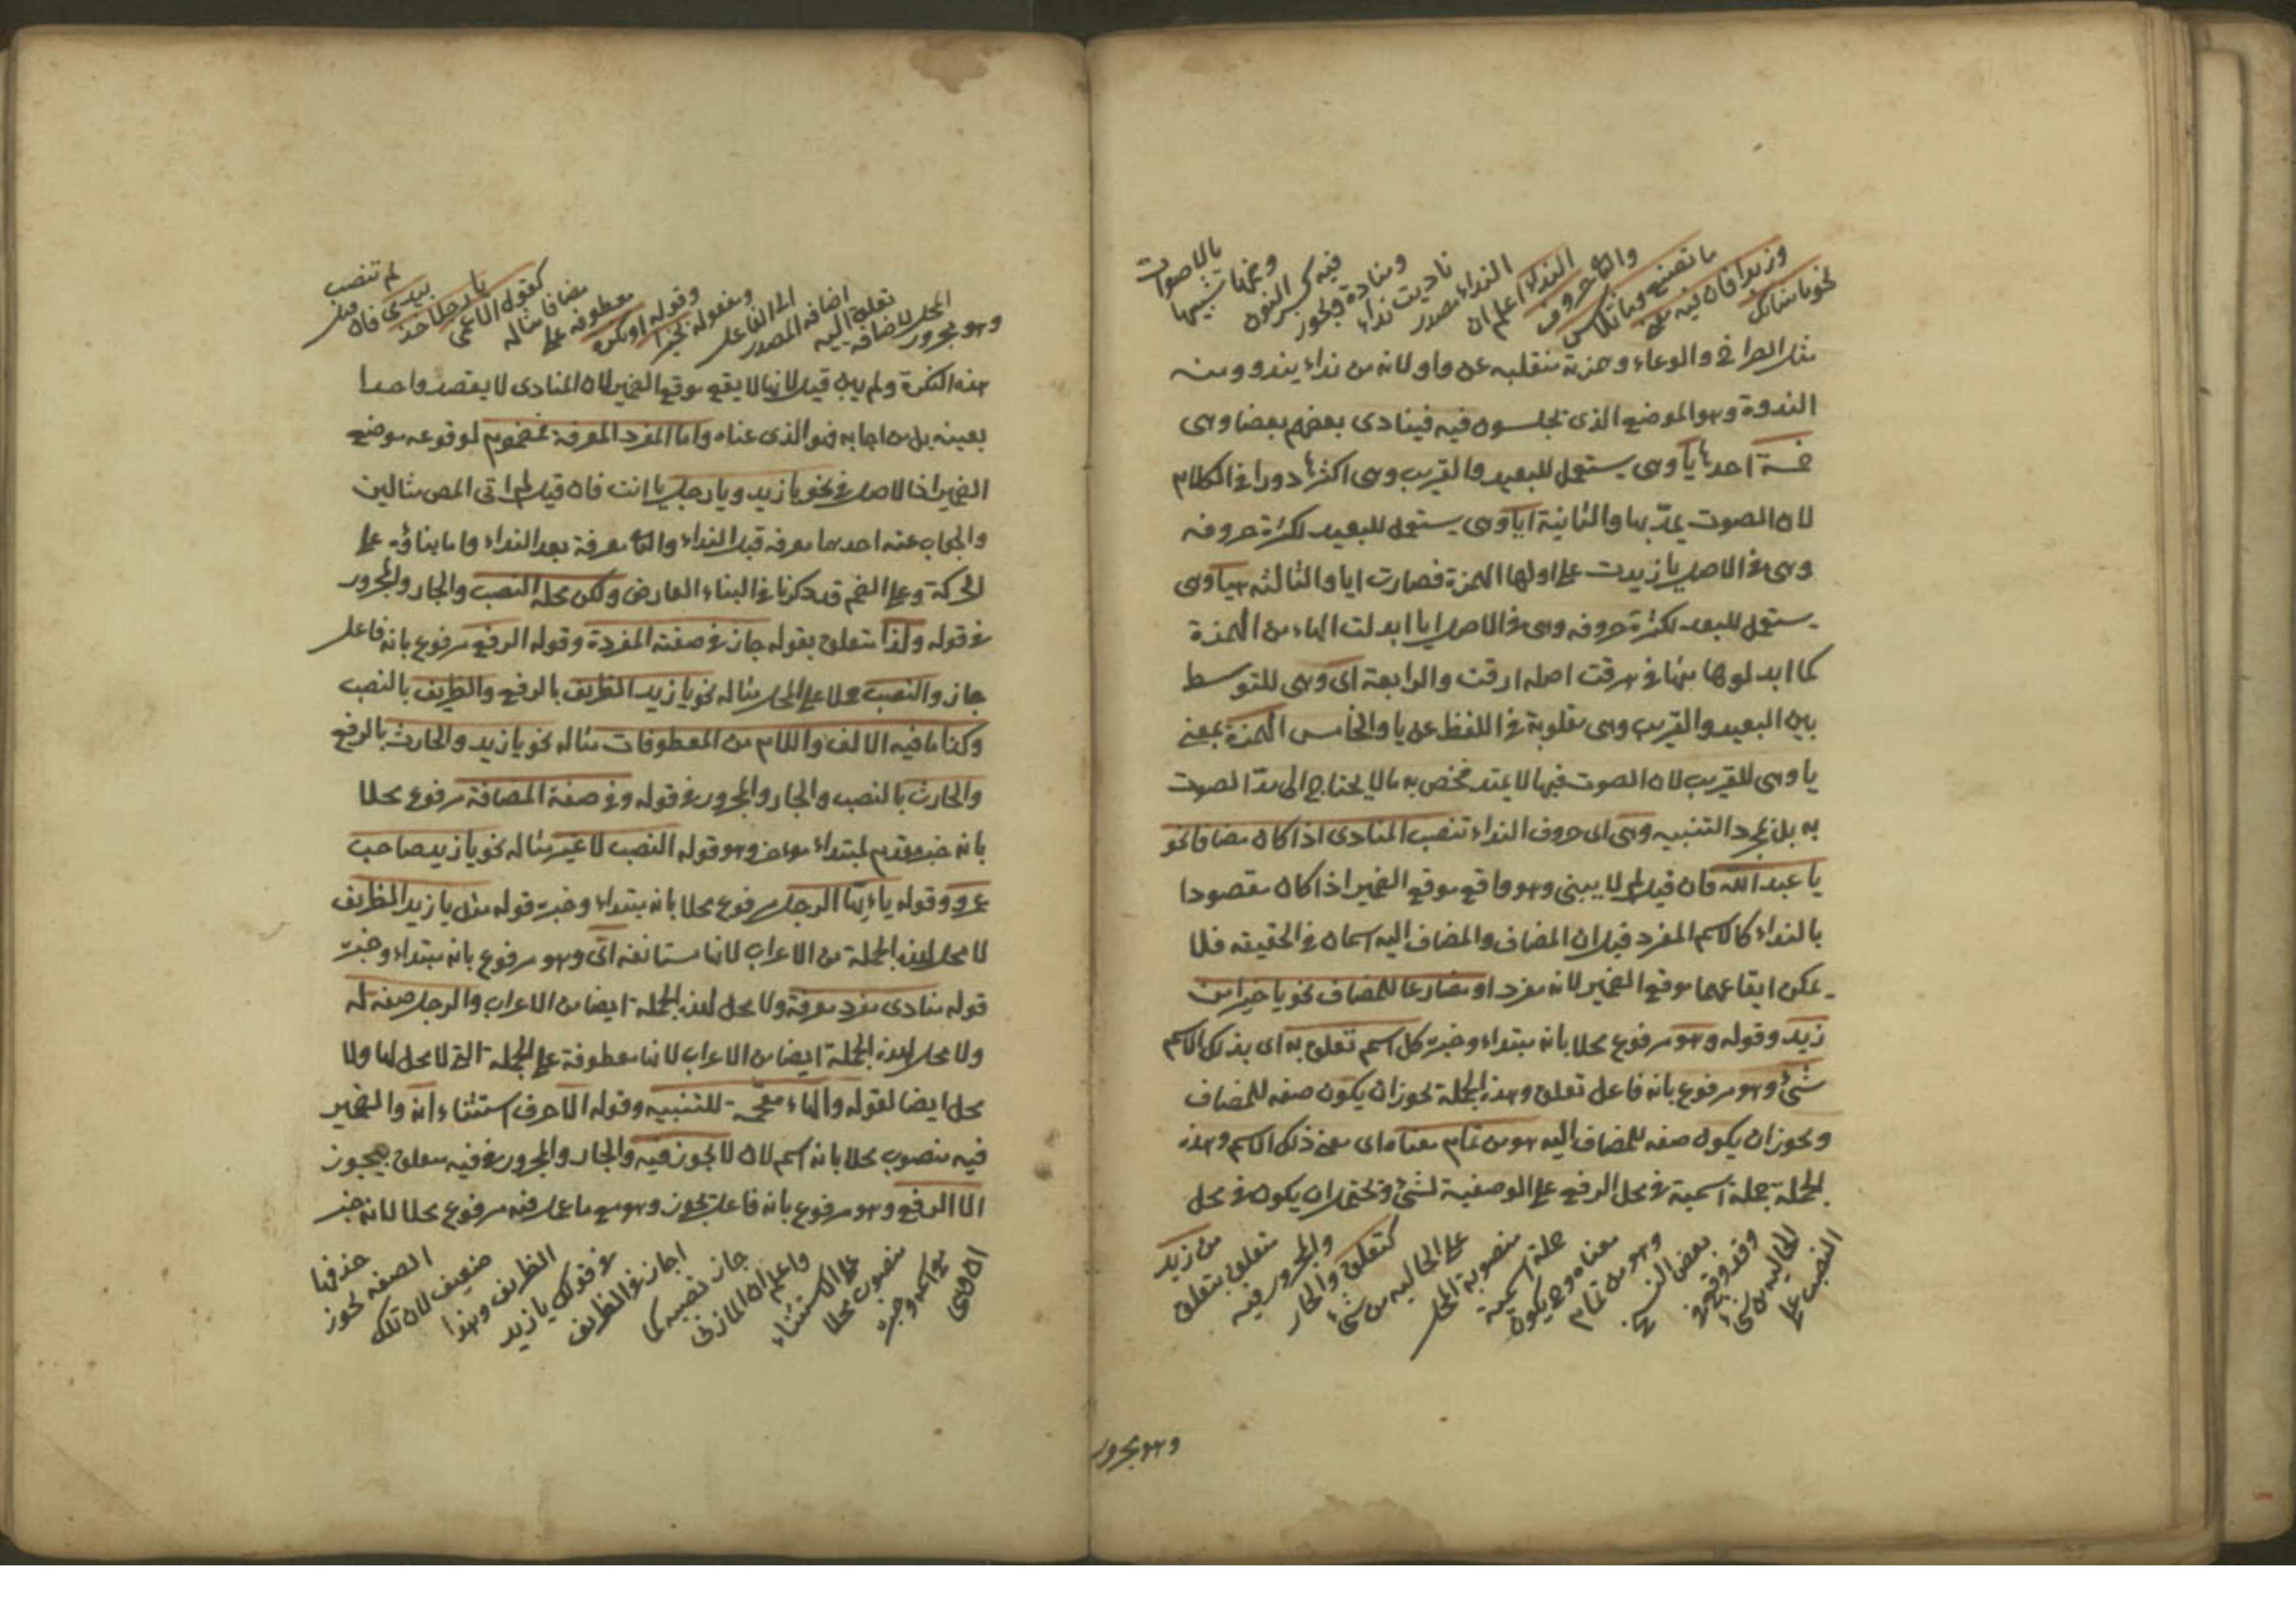 نحو ما شانك
وزيدا فان فيه معنى
ما تصنع وما تلابس
والثاني حروف
النداء اعلم ان
النداء مصدر
ناديت نداء
ومناداة ويجوز
فيه كسر النون
وضمها تشبيها
بالاصوات
مثل الصراخ والدعاء وهمزته منقلبه عن واو لانه من نداء يندو ومنه
الندوة وهو الموضع الذى يجلسون فيه فينادى بعضهم بعضا وهى
خمسة احدها يا وهى يستعمل للبعيد والقريب وهى اكثرها دورا فى الكلام
لان الصوت يمدّ بها والثانية ايا وهى يستعمل للبعيد لكثرة حروفه
وهى فى الاصل يا زيدت على اولها الهمزة فصارت ايا والثالثه هيا وهى
يستعمل للبعيد لكثرة حروفه وهى فى الاصل ايا ابدلت الهاء من الهمزة
كما ابدلوها منها فى هرقت اصله ارقت والرابعة اى وهى للتوسط
بين البعيد والقريب وهى مقلوبة فى اللفظ عن يا والخامس الهمزة بمعنى
يا وهى للقريب لان الصوت فيها لا يمتد فخص به ما لا يحتاج الى مدّ الصوت
به بل لمجرد التنبيه وهى اى حروف النداء تنصب المنادى اذا كان مضافا نحو
يا عبد الله فان قيل لم لا يبنى وهو واقع موقع الضمير اذا كان مقصودا
بالنداء كالاسم المفرد قيل ان المضاف والمضاف اليه اسمان فى الحقيقه فلا
يمكن ايقاعهما موقع الضمير لانه مفرد او مضارعا للمضاف نحو يا خيرا من
زيد وقوله وهو مرفوع محلا بانه مبتداء وخبره كل اسم تعلق به اى بذلك الاسم
شئ وهو مرفوع بانه فاعل تعلق وهذه الجملة يجوز ان يكون صفه للمضاف
ويجوز ان يكون صفه للمضاف اليه هو من تمام معناه اى معنى ذلك الاسم وهذه
الجملة جملة اسمية فى محل الرفع على الوصفية لشئ ويحتمل ان يكون فى محل
النصب على
الحاليه من شئ
وقد وقع فى
بعض النسخ
وهو من تمام
معناه وح يكون
جملة اسمية
منصوبة المحل
على الحاليه من شئ
كتعلق والجار
والمجرور فيه
متعلق بتعلق
من زيد
وهو مجرور
وهو مجرور
المحل لاضافه
تعلق اليه
اضافه المصدر
الى الفاعل
ومفعوله خيرا
وقوله او نكره
معطوفه على
مضافا مثاله
كقول الاعمى
يا رجلا خذ
بيدى فان قيل
لم تنصب
هذه النكرة ولم يبن قيل لانها لا يقع موقع الضمير لان المنادى لا يقصد واحدا
بعينه بل من اجابه فهو الذى عناه واما المفرد المعرفة فمضموم لوقوعه موضع
الضمير اذ الاصل فى نحو يا زيد ويا رجل يا انت فان قيل لم اتى المص مثالين
والجواب عنه احدهما معرفه قبل النداء والثانى معرفة بعد النداء واما بناؤه على
الحركة وعلى الضم قد ذكرنا فى البناء العارض ولكن محله النصب والجار والمجرور
فى قوله ولذا متعلق بقوله جاز فى صفته المفردة وقوله الرفع مرفوع بانه فاعل
جاز والنصب حملا على المحل مثاله نحو يا زيد الظريف بالرفع والظريف بالنصب
وكذا ما فيه الالف واللام من المعطوفات مثاله نحو يا زيد والحارث بالرفع
والحارث بالنصب والجار والمجرور فى قوله وفى صفة المضافة مرفوع محلا
بانه خبر مقدم لمبتداء مؤخر وهو قوله النصب لا غير مثاله نحو يا زيد صاحب
عمرو وقوله يا ايّها الرجل مرفوع محلا بانه مبتداء وخبره قوله مثل يا زيد الظريف
لا محل لهذه الجملة من الاعراب لانها مستانفه اىّ وهو مرفوع بانه مبتداء وخبره
قوله منادى مفرد معرفة ولا محل لهذه الجملة ايضا من الاعراب والرجل صفه له
ولا محل لهذه الجملة ايضا من الاعراب لانها معطوفة على الجملة التى لا محل لها ولا
محل ايضا لقوله والهاء مقحمة للتنبيه وقوله الا حرف استثناء انه والضمير
فيه منصوب محلا بانه اسم لان لا يجوز فيه والجار والمجرور فى فيه متعلق بيجوز
الا الرفع وهو مرفوع بانه فاعل يجوز وهو مع ما عمل فيه مرفوع محلا لانه خبر
ان وهى
مع اسمه وخبره
منصوب محلا
على الاستثناء
واعلم ان المازنى
جاز نصبه كما
اجاز فى الظريف
فى قولك يا زيد
الظريف وهذا
ضعيف لان تلك
الصفه يجوز
حذفها